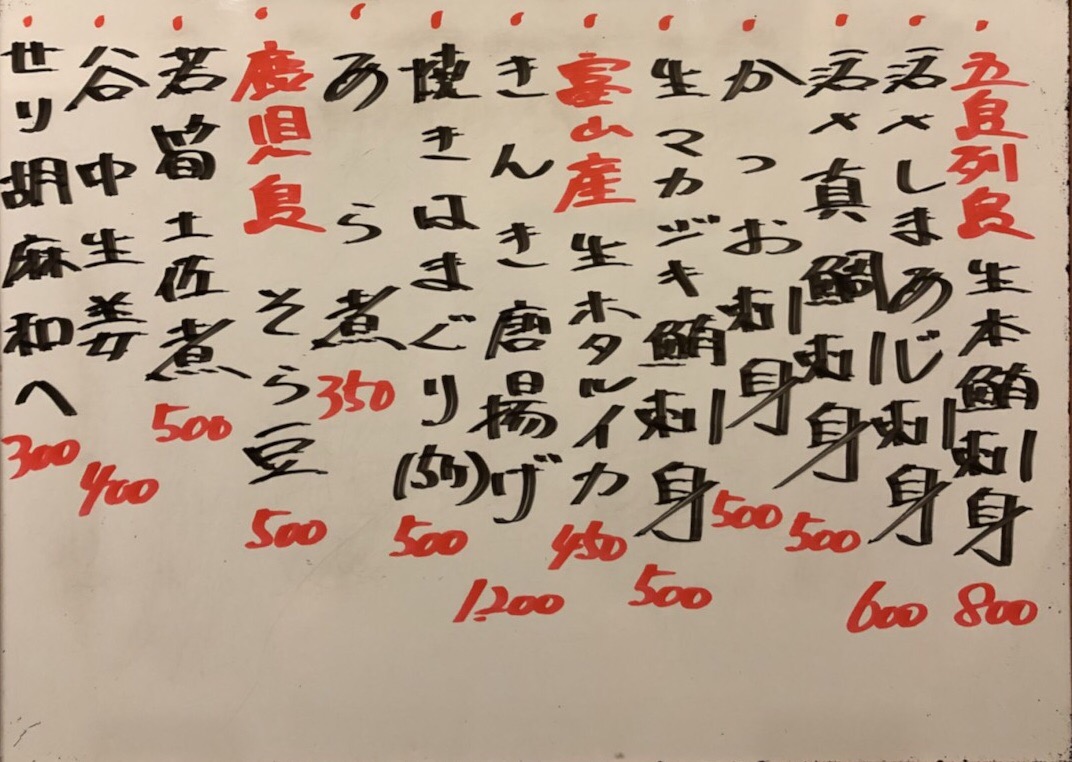 五島列島生本鮪刺身 800
活〆しまあじ刺身 600
活〆真鯛刺身 500
かつお刺身 500
生マカジキ鮪刺身 500
富山産生ホタルイカ 450
きんき唐揚げ 1.200
焼きはまぐり(5ケ) 500
あら煮 350
鹿児島そら豆 500
若筍土佐煮 500
谷中生姜 400
せり胡麻和へ 300